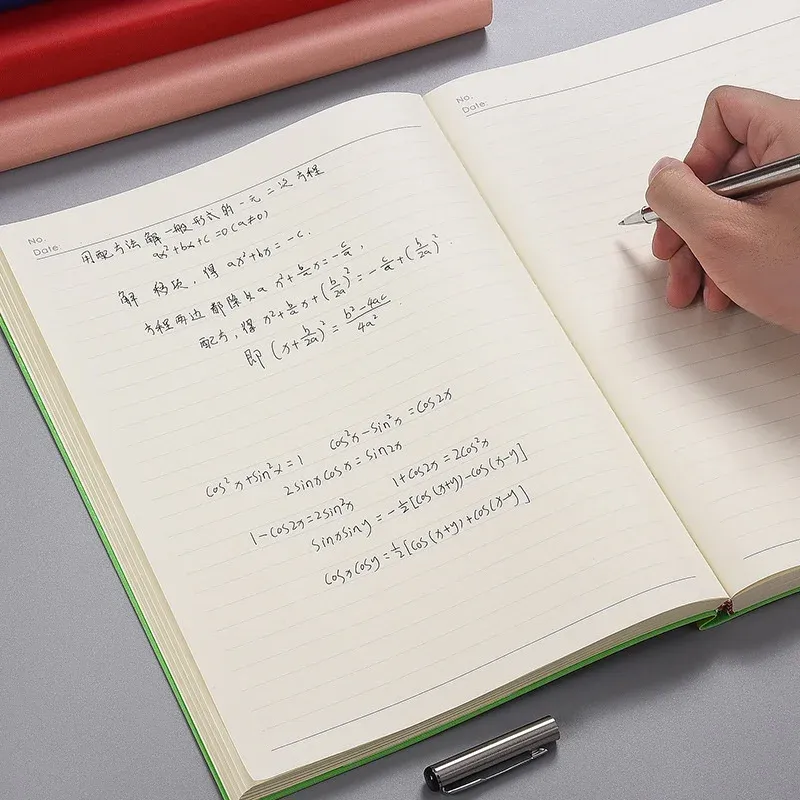 No.
Date
用配方法解一般形式的一元二次方程
ax²+bx+c=0(a≠0)
解 移项,得 ax²+bx=-c.
方程两边都除以a x²+b/a x=-c/a,
配方,得 x²+b/a x+(b/2a)²=-c/a+(b/2a)².
即 (x+b/2a)²=b²-4ac/4a².
cos²x+sin²x=1 cos²x-sin²x=cos2x
2sinxcosx=sin2x
1-cos2x=2sin²x 1+cos2x=2cos²x
sinxsiny=-½[cos(x+y)-cos(x-y)]
cosxcosy=½[cos(x+y)+cos(x-y)]
No.
Date: